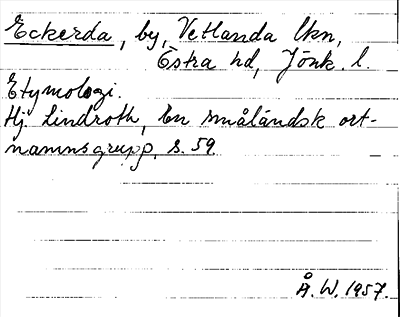 Eckerda, by, Vetlanda lkn,
Östra hd, Jönk. l.
Etymologi.
Hj. Lindroth, En småländsk ort-
namnsgrupp, s. 59.
Å. W. 1957.